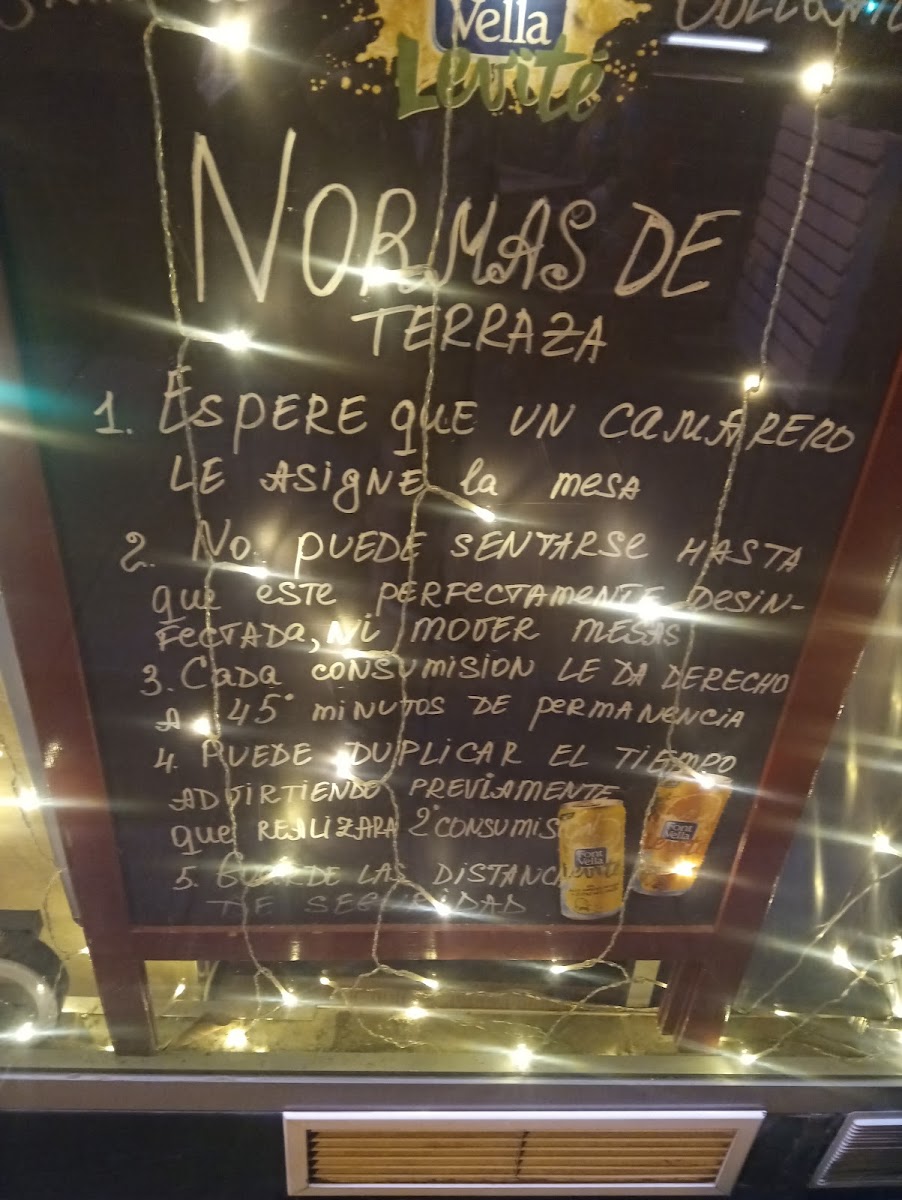 Vella
Levité
NORMAS DE
TERRAZA
1. ESPERE QUE UN CAMARERO
LE ASIGNE la MESA
2. NO PUEDE SENTARSE HASTA
que ESTE PERFECTAMENTE DESIN-
FECTADA, NI MOVER MESAS
3. CADA CONSUMISION LE DA DERECHO
A 45° MINUTOS DE PERMANENCIA
4. PUEDE DUPLICAR EL TIEMPO
ADVIRTIENDO PREVIAMENTE
que REALIZARA 2° CONSUMISION
5. GUARDE LAS DISTANCI
DE SEGURIDAD
Font
Vella
Levité
Font
Vella
Levité